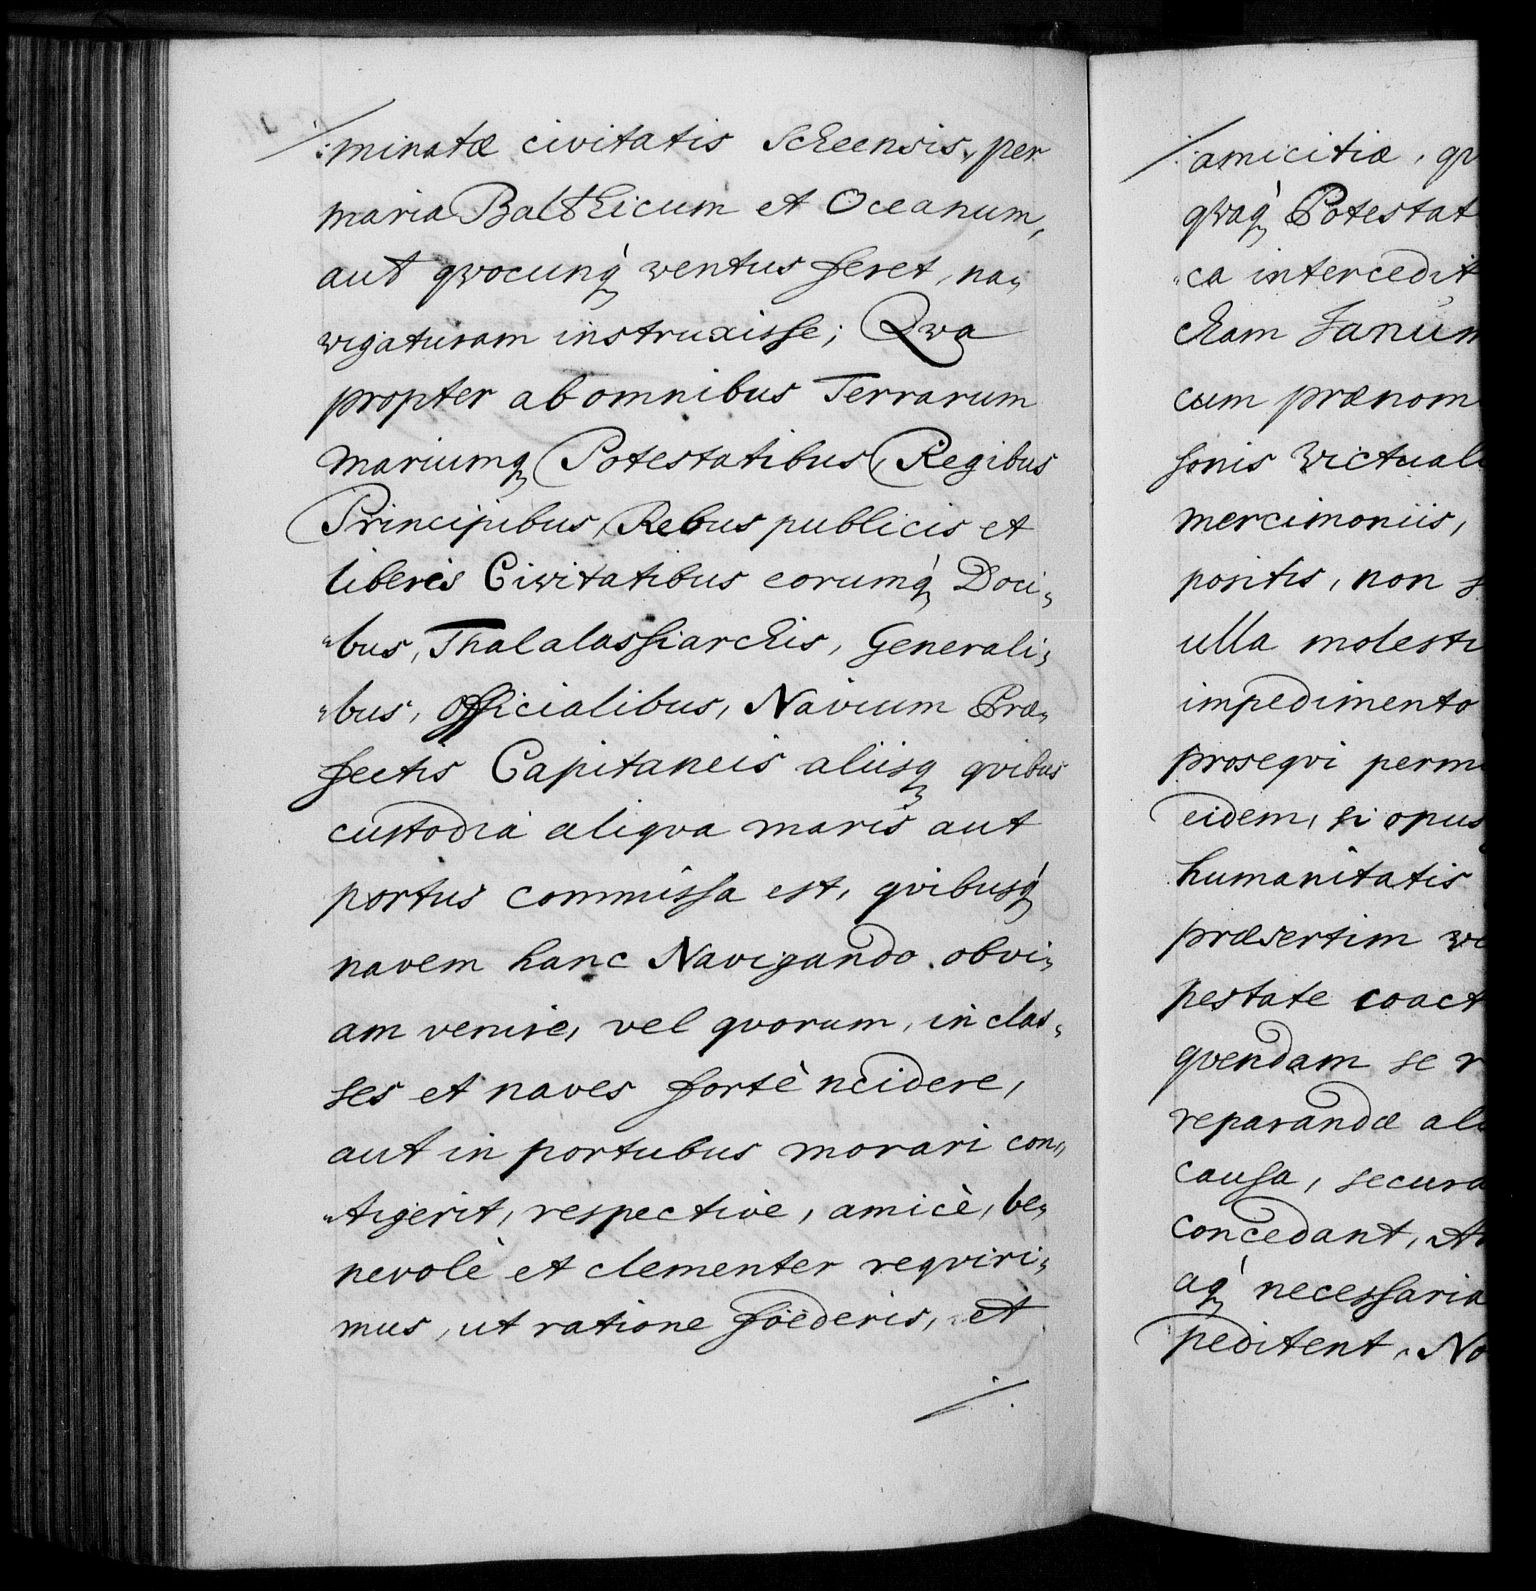 /: minatæ civitatis Scheensis, per
maria Balthicum et Oceanum,
aut qvocunq́ ventus feret, na,,
vigaturam instruxisse; Qva
propter ab omnibus Terrarum
mariumq Potestatibus, Regibus
Principibus, Rebus publicis et
liberis Civitatibus eorumq́ Doci,,
,,bus, Thalalassiarchis, Generali,,
,,bus, Officialibus, Navium Præ,,
fectis Capitaneis aliisq qvibus
custodia aliqva maris aut
portus commissa est, qvibusq́
navem hanc Navigando obvi,,
am venire, vel qvorum, in clas,,
ses et naves fortè ncidere,
aut in portubus morari con,,
,,tigerit, respectivè, amicè, be,,
nevolè et clementer reqviri,,
mus, ut ratione föederis, et
/.
/: amicitiæ, qv
qvaq́ Potestat
,,ca intercedit
cham Janum
cum prænom
sonis victuali
mercimoniis,
positis, non s
ulla molesti
impedimento
proseqvi permi
eidem, si opus
humanitatis
præsertim
pestate coact
qvendam se r
reparandæ ali
causa, secura
concedant,
aq́ necessaria
peditent, No